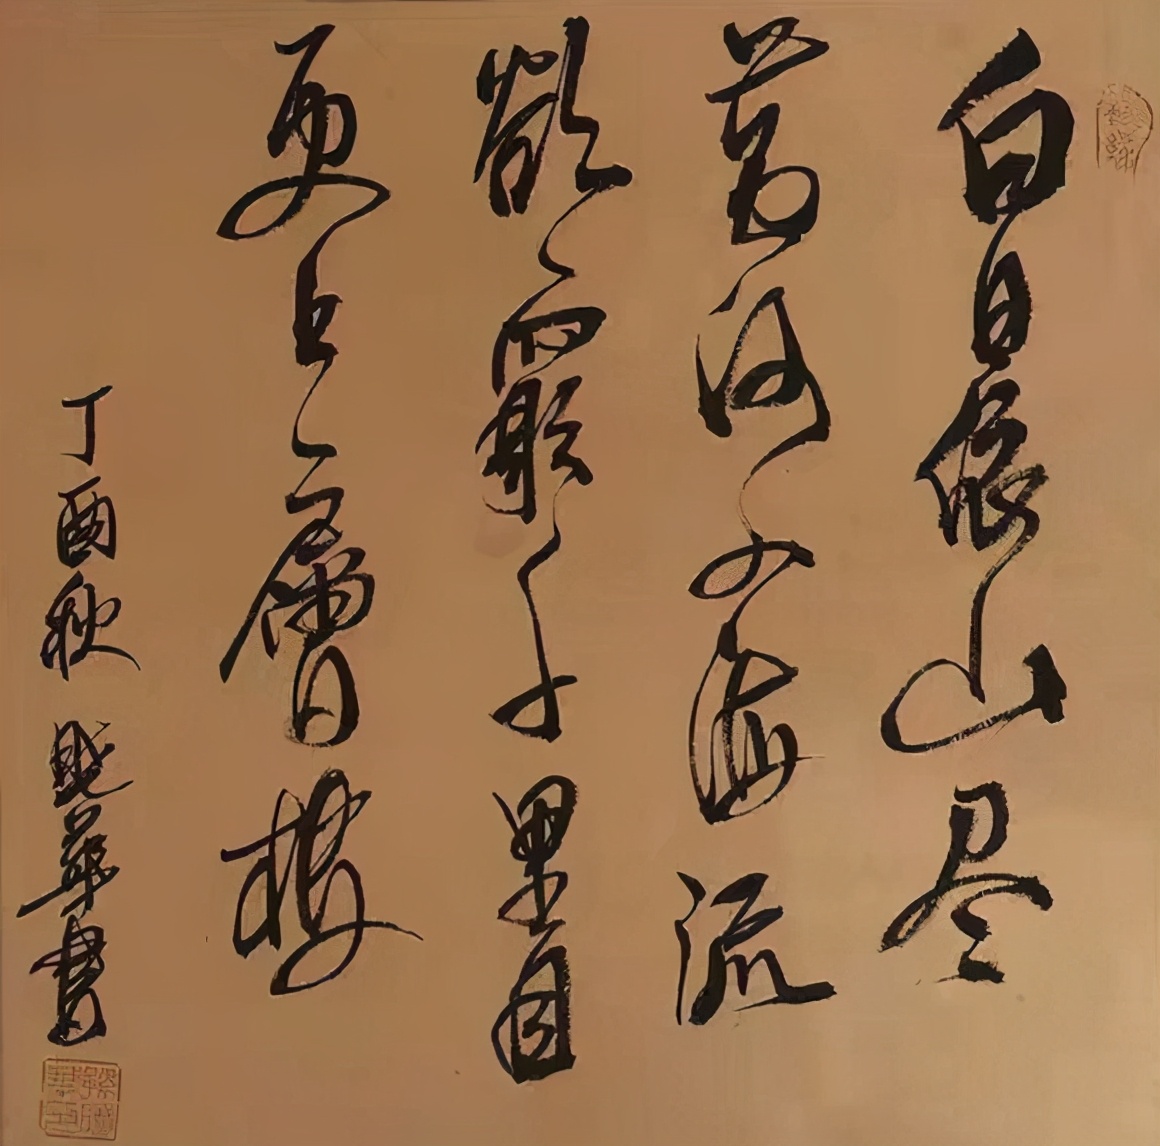 白日依山尽
黄河入海流
欲窮千里目
更上一層樓
丁酉秋 華書